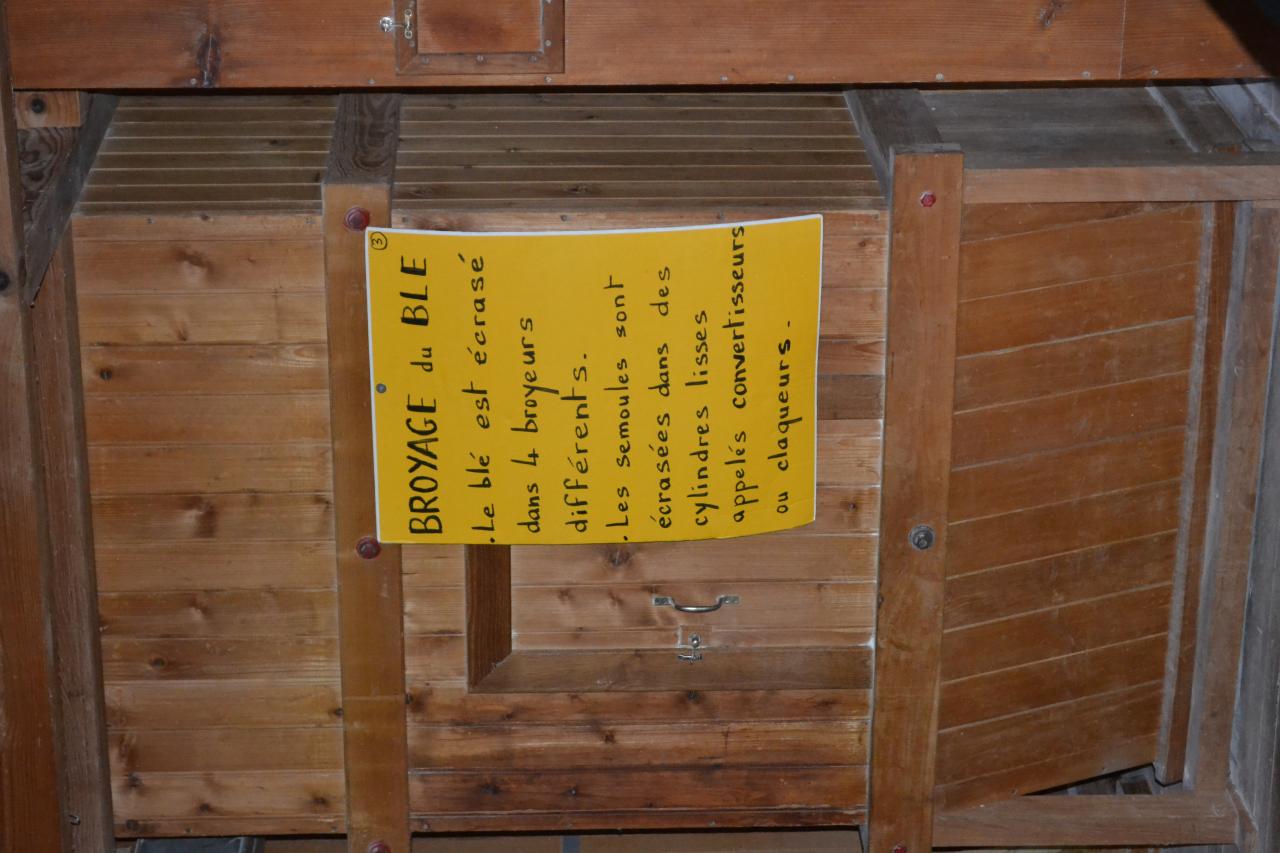 ③
BROYAGE du BLE
. Le blé est écrasé
dans 4 broyeurs
différents.
. Les semoules sont
écrasées dans des
cylindres lisses
appelés convertisseurs
ou claqueurs.